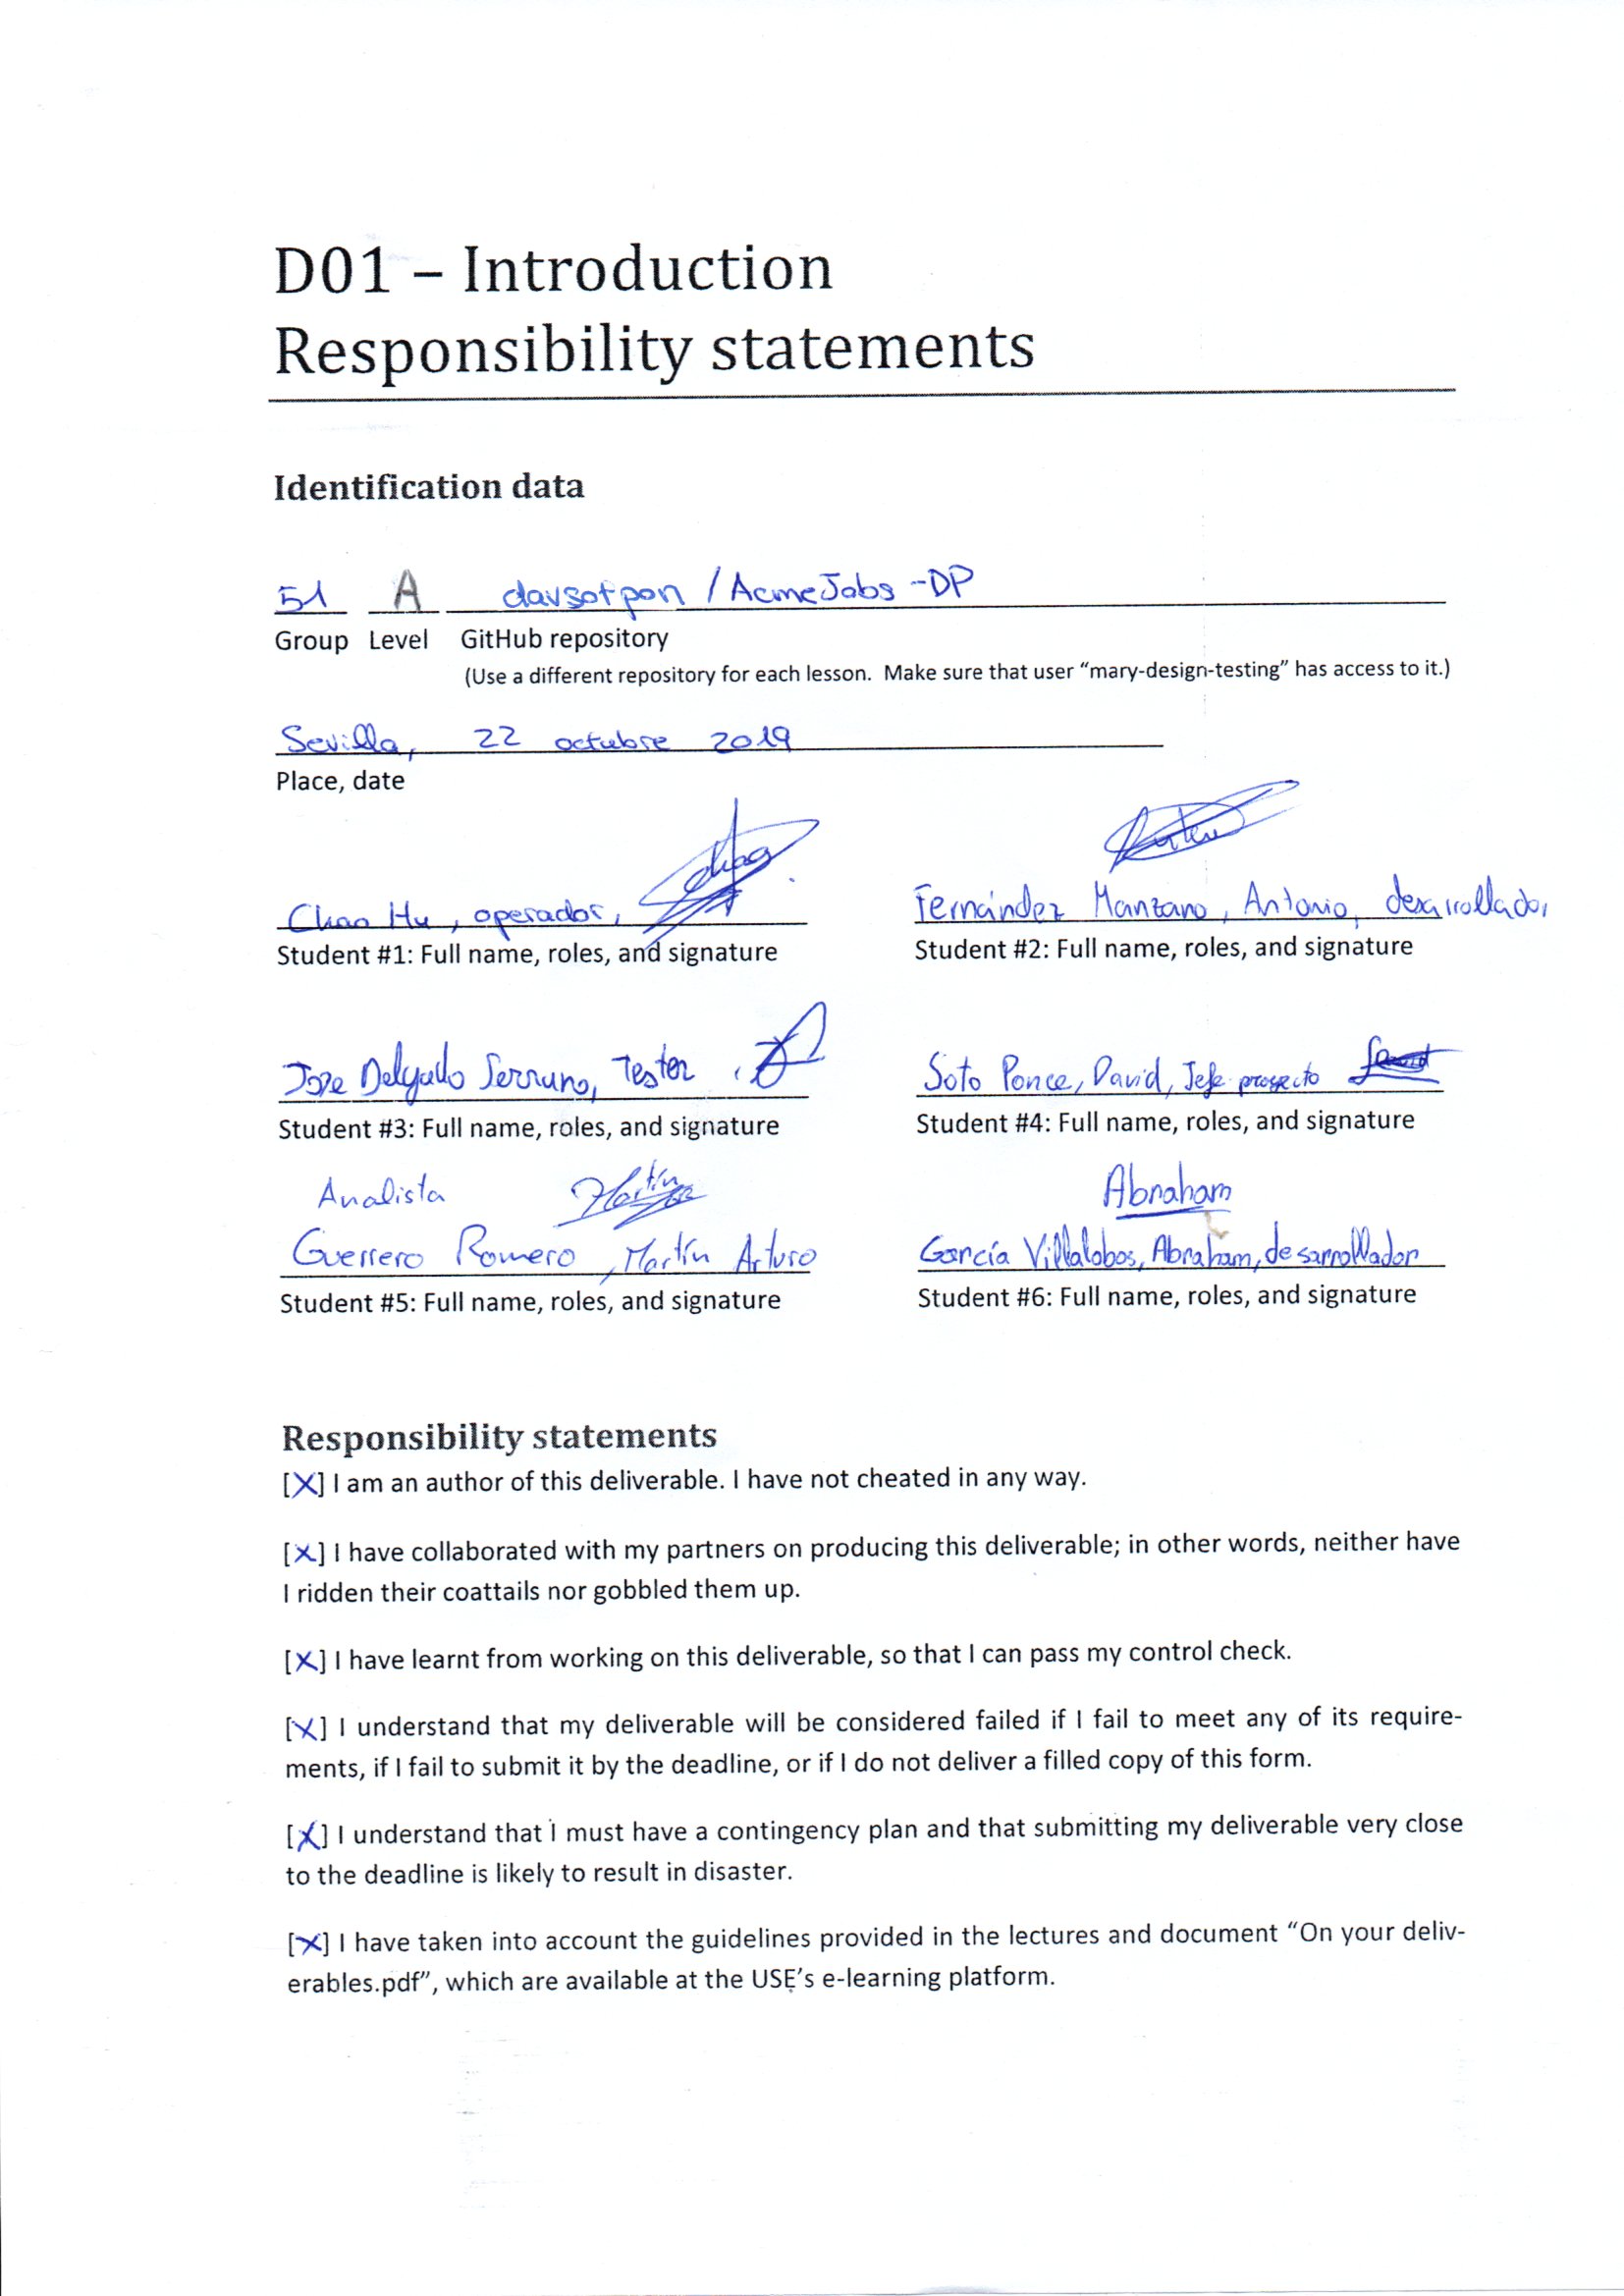 D01 – Introduction
Responsibility statements
Identification data
51 A davsotpon / AcmeJobs -DP
Group Level GitHub repository
(Use a different repository for each lesson. Make sure that user “mary-design-testing” has access to it.)
Sevilla, 22 octubre 2019
Place, date
Chao Hu, operador,
Student #1: Full name, roles, and signature
Fernández Manzano, Antonio, desarrollador
Student #2: Full name, roles, and signature
Jose Delgado Serrano, Tester,
Student #3: Full name, roles, and signature
Soto Ponce, David, Jefe proyecto
Student #4: Full name, roles, and signature
Analista Martín
Guerrero Romero, Martín Arturo
Student #5: Full name, roles, and signature
Abraham
García Villalobos, Abraham, desarrollador
Student #6: Full name, roles, and signature
Responsibility statements
[X] I am an author of this deliverable. I have not cheated in any way.
[X] I have collaborated with my partners on producing this deliverable; in other words, neither have
I ridden their coattails nor gobbled them up.
[X] I have learnt from working on this deliverable, so that I can pass my control check.
[X] I understand that my deliverable will be considered failed if I fail to meet any of its require-
ments, if I fail to submit it by the deadline, or if I do not deliver a filled copy of this form.
[X] I understand that I must have a contingency plan and that submitting my deliverable very close
to the deadline is likely to result in disaster.
[X] I have taken into account the guidelines provided in the lectures and document “On your deliv-
erables.pdf”, which are available at the USE’s e-learning platform.